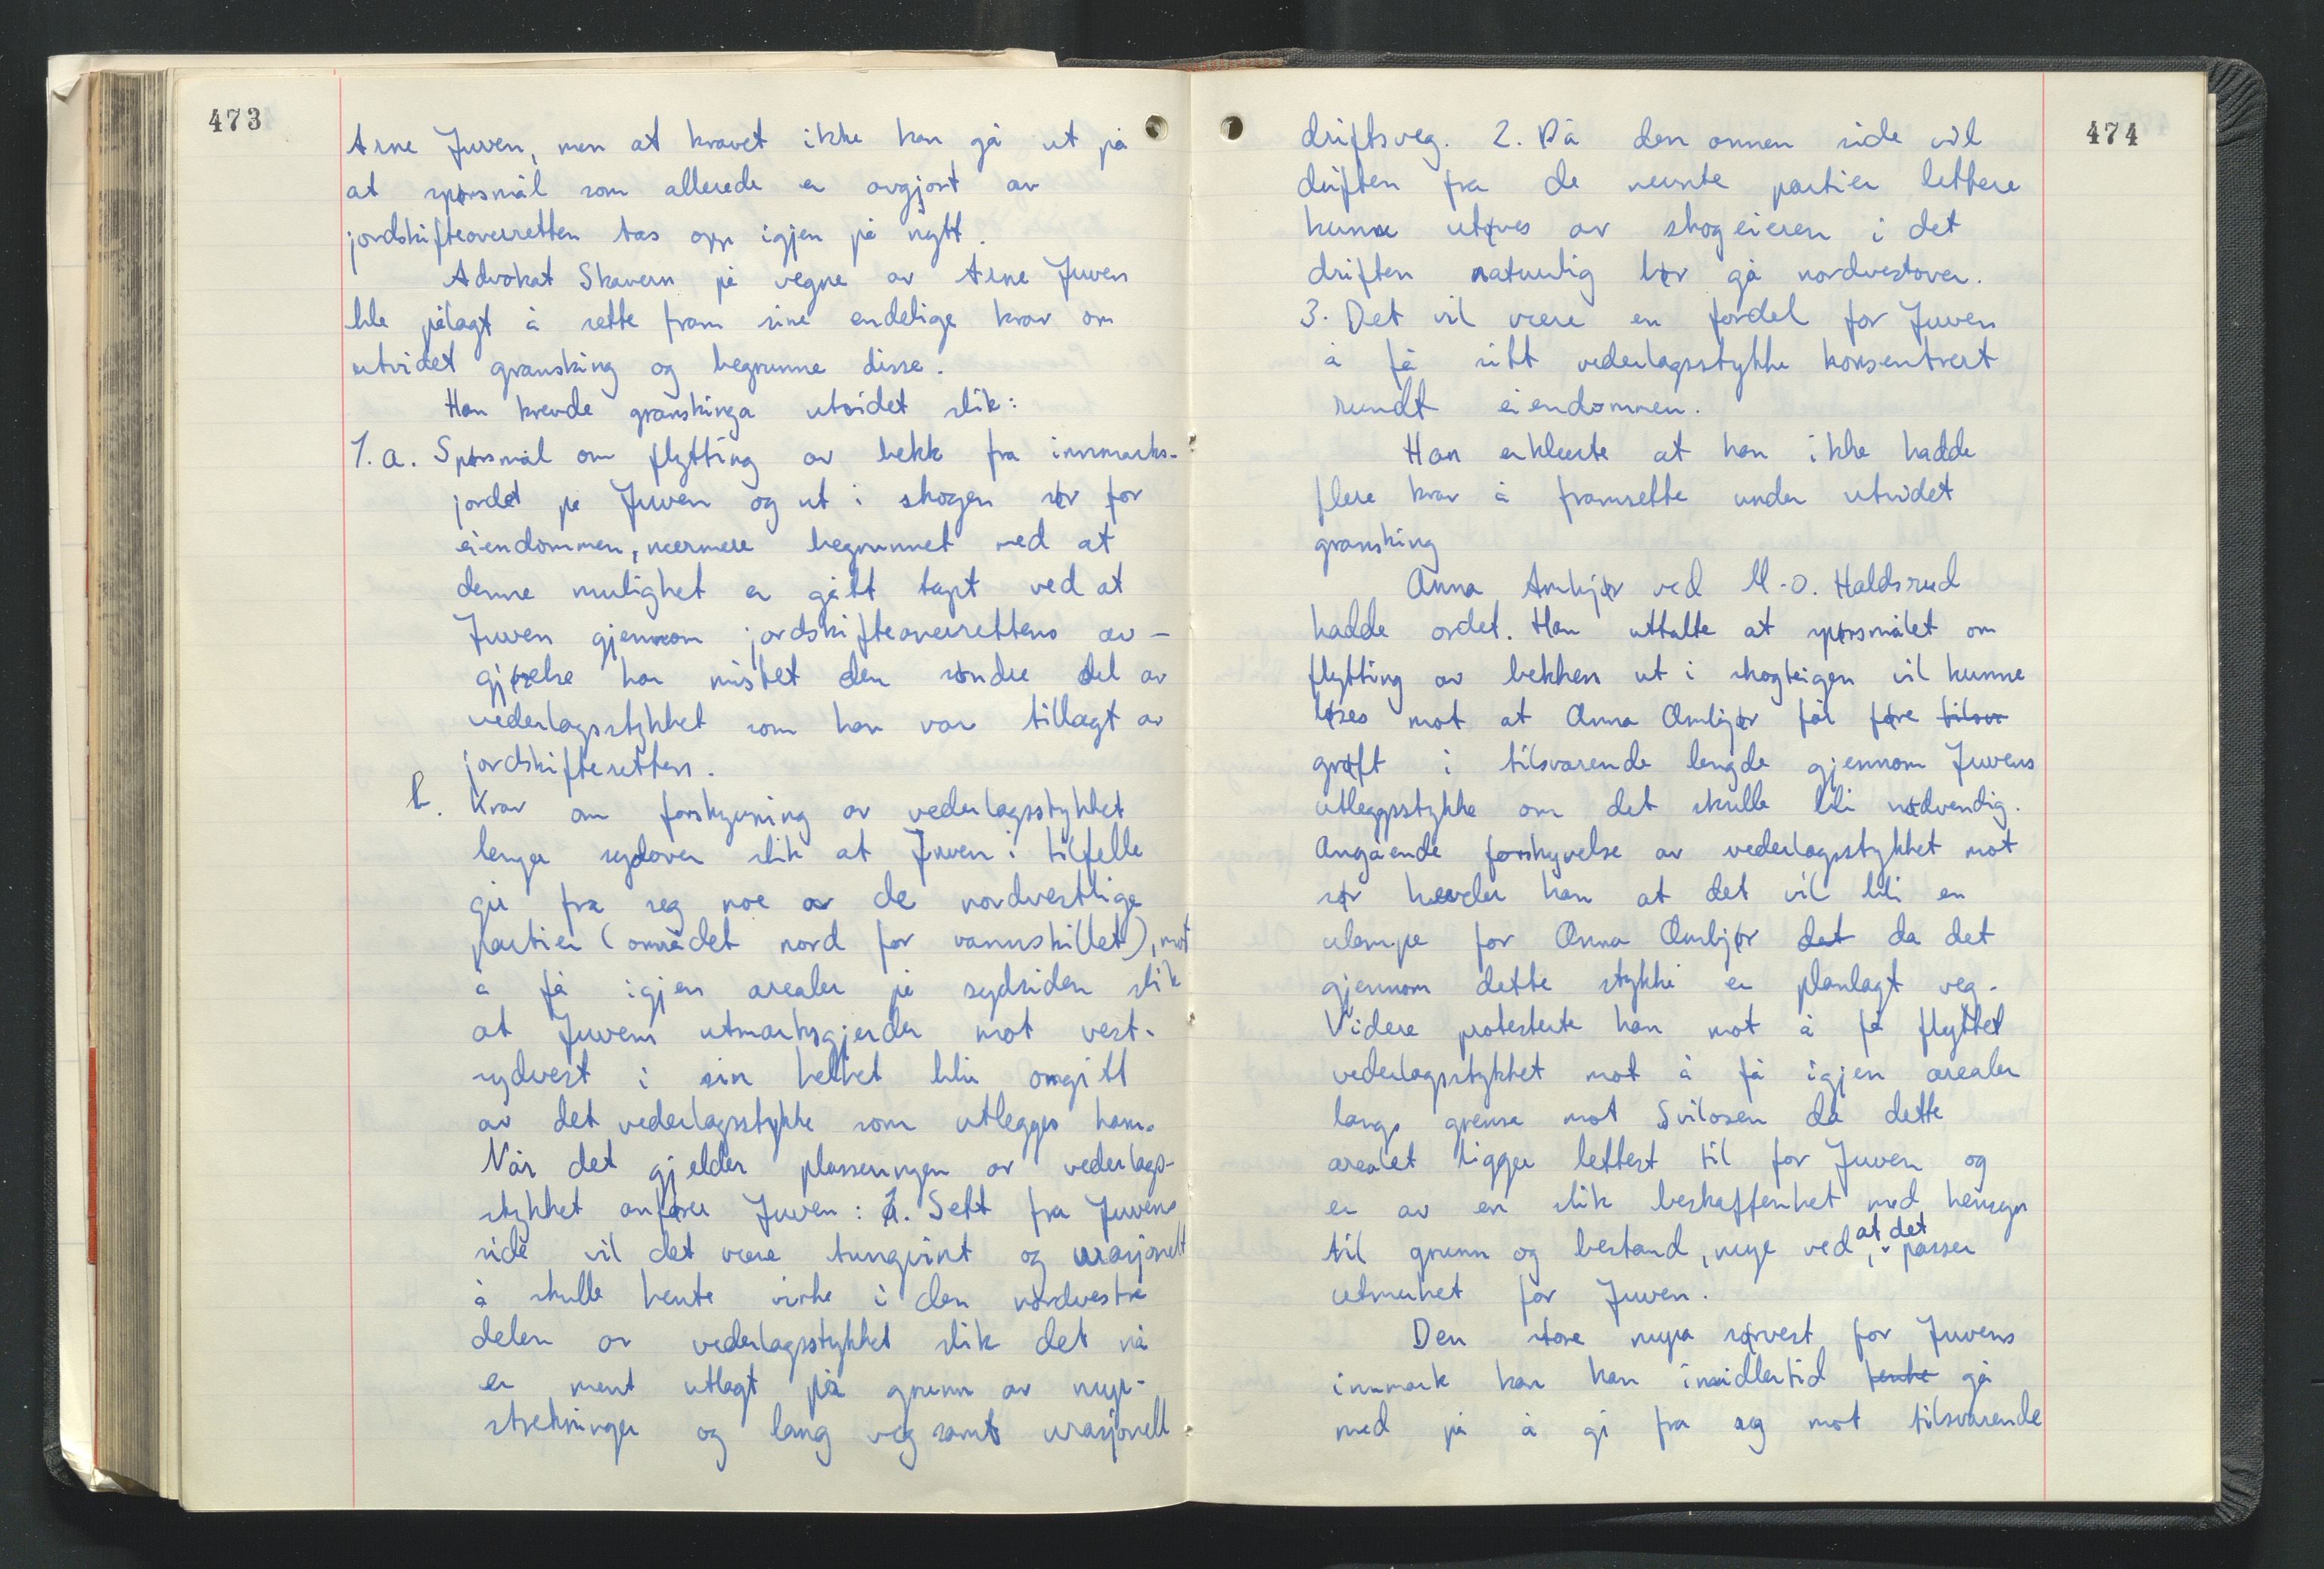 473
Arne Juven, men at kravet ikke kan gå ut på
at spørsmål som allerede er avgjort av
jordskifteoverretten tas opp igjen på nytt.
Advokat Skavern på vegne av Arne Juven
ble pålagt å sette fram sine endelige krav om
utvidet gransking og begrunne disse.
Han krevde granskinga utvidet slik:
1. a. Spørsmål om flytting av bekk fra innmarks-
jordet på Juven og ut i skogen sør for
eiendommen, nærmere begrunnet med at
denne mulighet er gått tapt ved at
Juven gjennom jordskifteoverrettens av-
gjørelse har mistet den søndre del av
vederlagsstykket som han var tillagt av
jordskifteretten.
b. Krav om forskyvning av vederlagsstykket
lenger sydover slik at Juven i tilfelle
gir fra seg noe av de nordvestlige
partier (området nord for vannskillet), mot
å få igjen arealer på sydsiden slik
at Juvens utmarksgjerder mot vest-
sydvest i sin helhet blir omgitt
av det vederlagsstykke som utlegges ham.
Når det gjelder plasseringen av vederlags-
stykket anfører Juven: 1. Sett fra Juvens
side vil det være tungvint og urasjonelt
å skulle hente virke i den nordvestre
delen av vederlagsstykket slik det nå
er ment utlagt på grunn av myr-
strekninger og lang veg samt urasjonell
474
driftsveg. 2. På den annen side vil
driften fra de nevnte partier lettere
kunne utøves av skogeieren i det
driften naturlig bør gå nordvestover.
3. Det vil være en fordel for Juven
å få sitt vederlagsstykke konsentrert
rundt eiendommen.
Han erklærte at han ikke hadde
flere krav å framsette under utvidet
gransking
Anna Ambjør ved M.O. Haldsrud
hadde ordet. Han uttalte at spørsmålet om
flytting av bekken ut i skogteigen vil kunne
løses mot at Anna Ambjør får føre tilsva
grøft i tilsvarende lengde gjennom Juvens
utleggsstykke om det skulle bli nødvendig.
Angående forskyvelse av vederlagsstykket mot
sør hevder han at det vil bli en
ulempe for Anna Ambjør det da det
gjennom dette stykke er planlagt veg.
Videre protesterte han mot å få flyttet
vederlagsstykket mot å få igjen arealer
langs grense mot Svilosen da dette
arealet ligger lettest til for Juven og
er av en slik beskaffenhet med hensyn
til grunn og bestand, mye ved, at det passer
utmerket for Juven.
Den store myra sørvest for Juvens
innmark kan han imidlertid gå
med på å gi fra seg mot tilsvarende